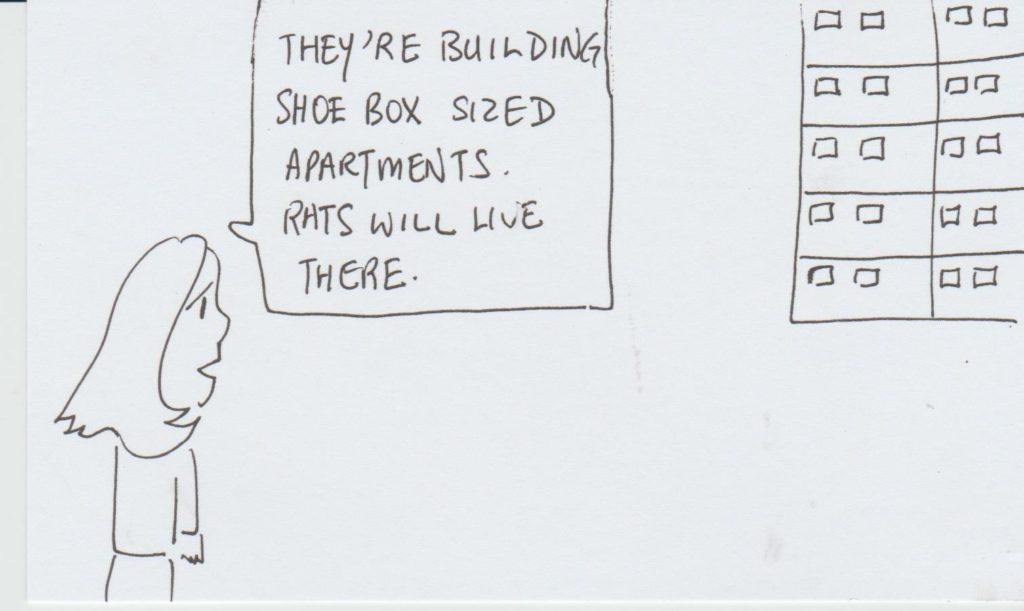 THEY'RE BUILDING
SHOE BOX SIZED
APARTMENTS.
RATS WILL LIVE
THERE.